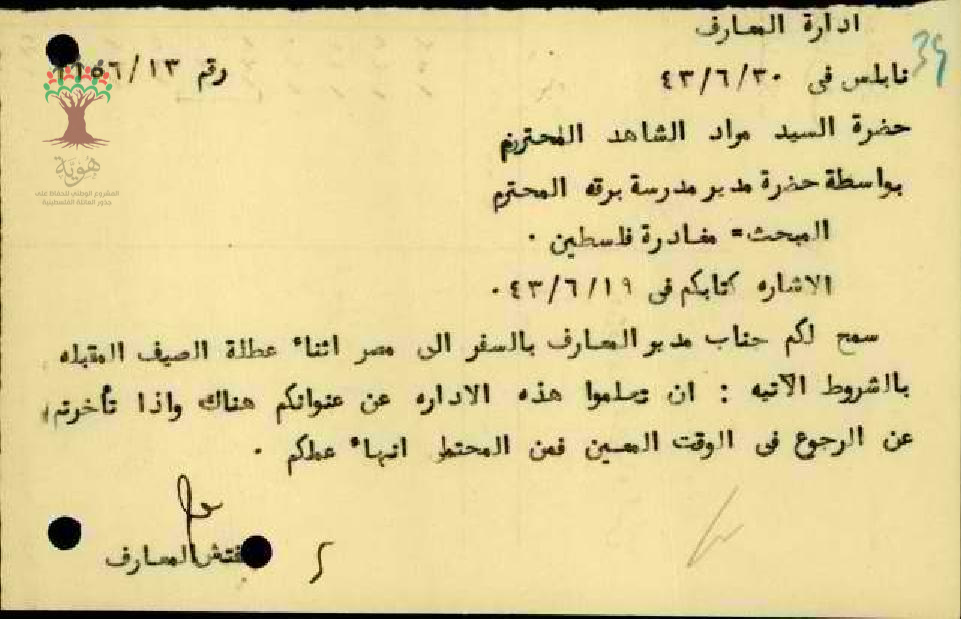 ادارة المعارف
39
نابلس في ٤٣/٦/٣٠
رقم ١١٥٦/١٣
حضرة السيد مراد الشاهد المحترم
بواسطة حضرة مدير مدرسة برقه المحترم
المبحث= مغادرة فلسطين ٠
الاشاره كتابكم في ٤٣/٦/١٩ ٠
سمح لكم جناب مدير المعارف بالسفر الى مصر اثناء عطلة الصيف المقبله
بالشروط الآتيه : ان تعلموا هذه الاداره عن عنوانكم هناك واذا تأخرتم
عن الرجوع في الوقت المعين فمن المحتمل انهاء عملكم ٠
مفتش المعارف
هوية
المشروع الوطني للحفاظ على
جذور العائلة الفلسطينية